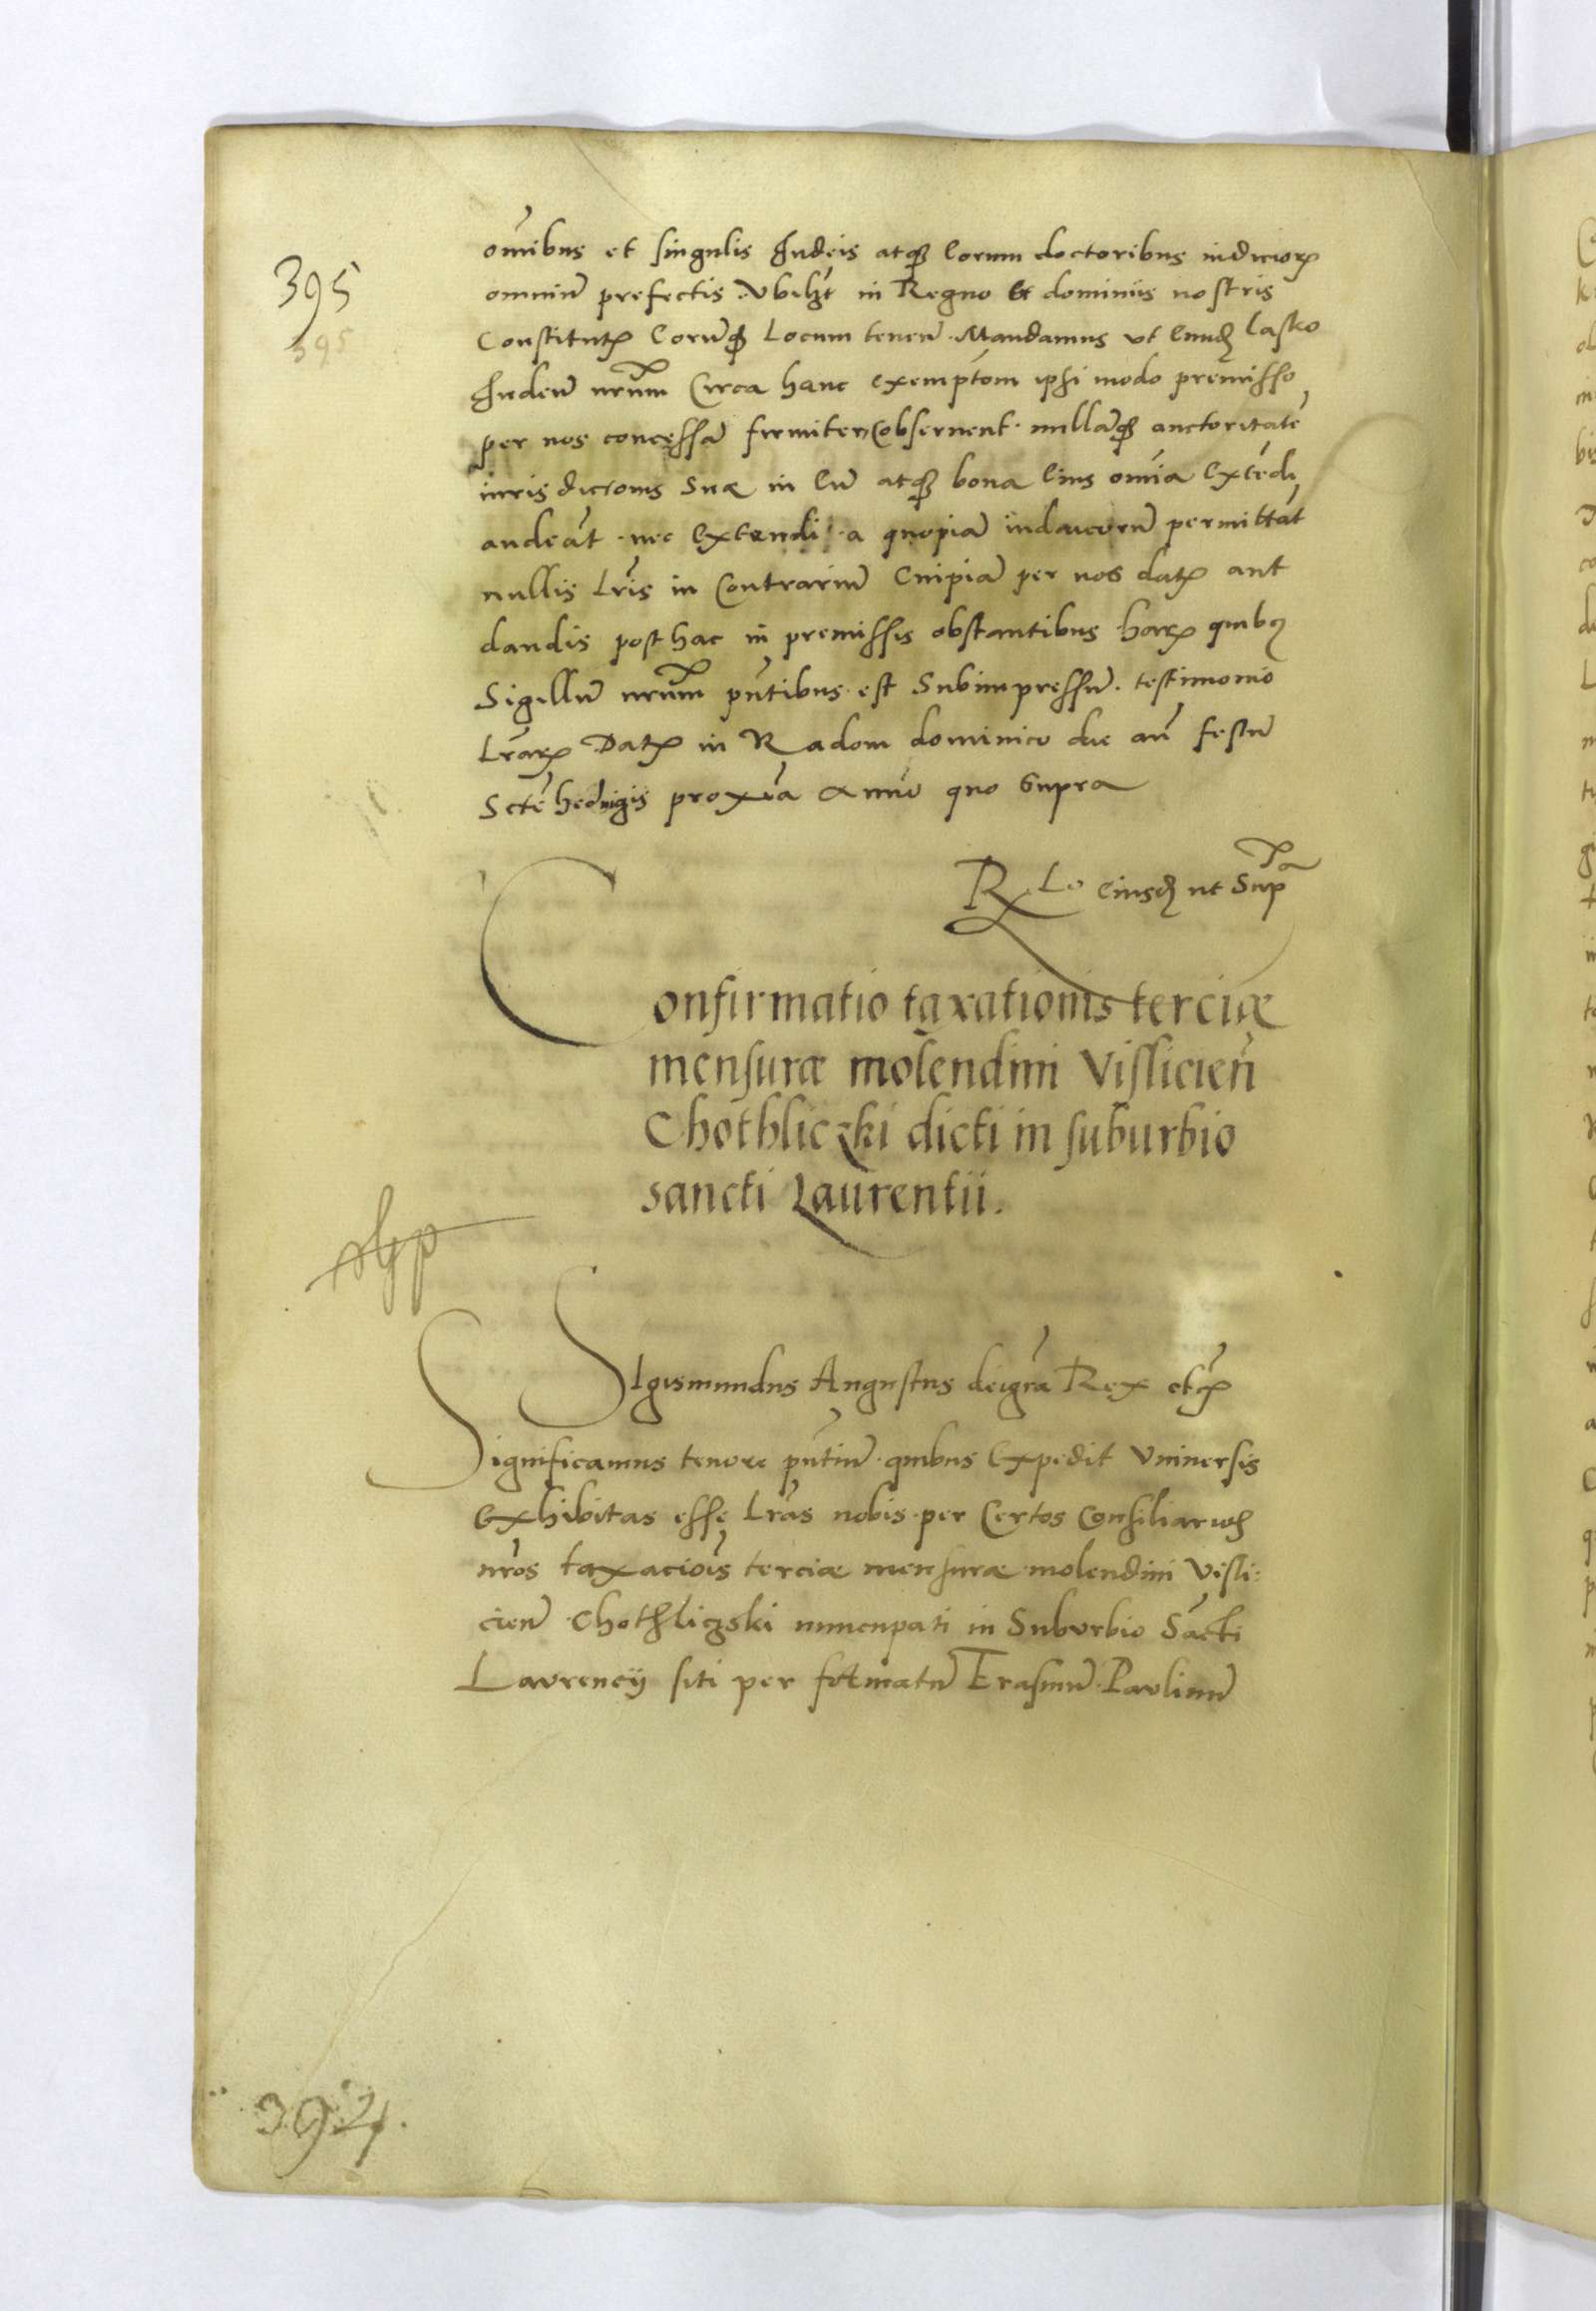 395
395
om̃ibus et singulis Iudeis atq₃ eorum doctoribus iudiciorꝝ
omniũ prefectis vbilʒt in Regno et dominiis nostris
Constitutꝝ eorũq₃ Locum teneñ. Mandamus vt eundẽ Lasko
Iudeũ nr̃um Circa hanc exemptõm ipsi modo premisso
per nos concessã firmiter Cobseruent. nullãq₃ auctoritatẽ
iurisdictiõis suæ in eũ atq₃ bona eius om̃ia extẽdẽ
audeãt nec extendi a quopiã iudaicorũ permittãt
nullis Lr̃is in Contrariũ Cuipiã per nos datꝝ aut
dandis posthac in premissis obstantibus harꝝ quibꝫ
Sigillũ nr̃um pñtibus est Subimpressũ. testimonio
Lr̃arꝝ Datꝝ in Radom dominico die añ festũ
Sctẽ hedvigis proxĩa Anno quo supra
R Lo eiusdẽ ut Supᵃ
Confirmatio taxationis terciæ
mensuræ molendini Visslicieñ
Chothliczki dicti in suburbio
sancti Laurentii.
Sigismundus Augustus dei gr̃a Rex etcꝝ
Significamus tenore pñtiũ. quibus expedit Vniuersis
Exhibitas esse Lr̃as nobis per Certos Consiliarios
nr̃os taxaciõis terciæ mensuræ molendini Visli:
cieñ Chothliczski nuncupati in Suburbio Sãcti
Laurencij siti per fa᷑matũ Erasmũ Paulinũ
394.